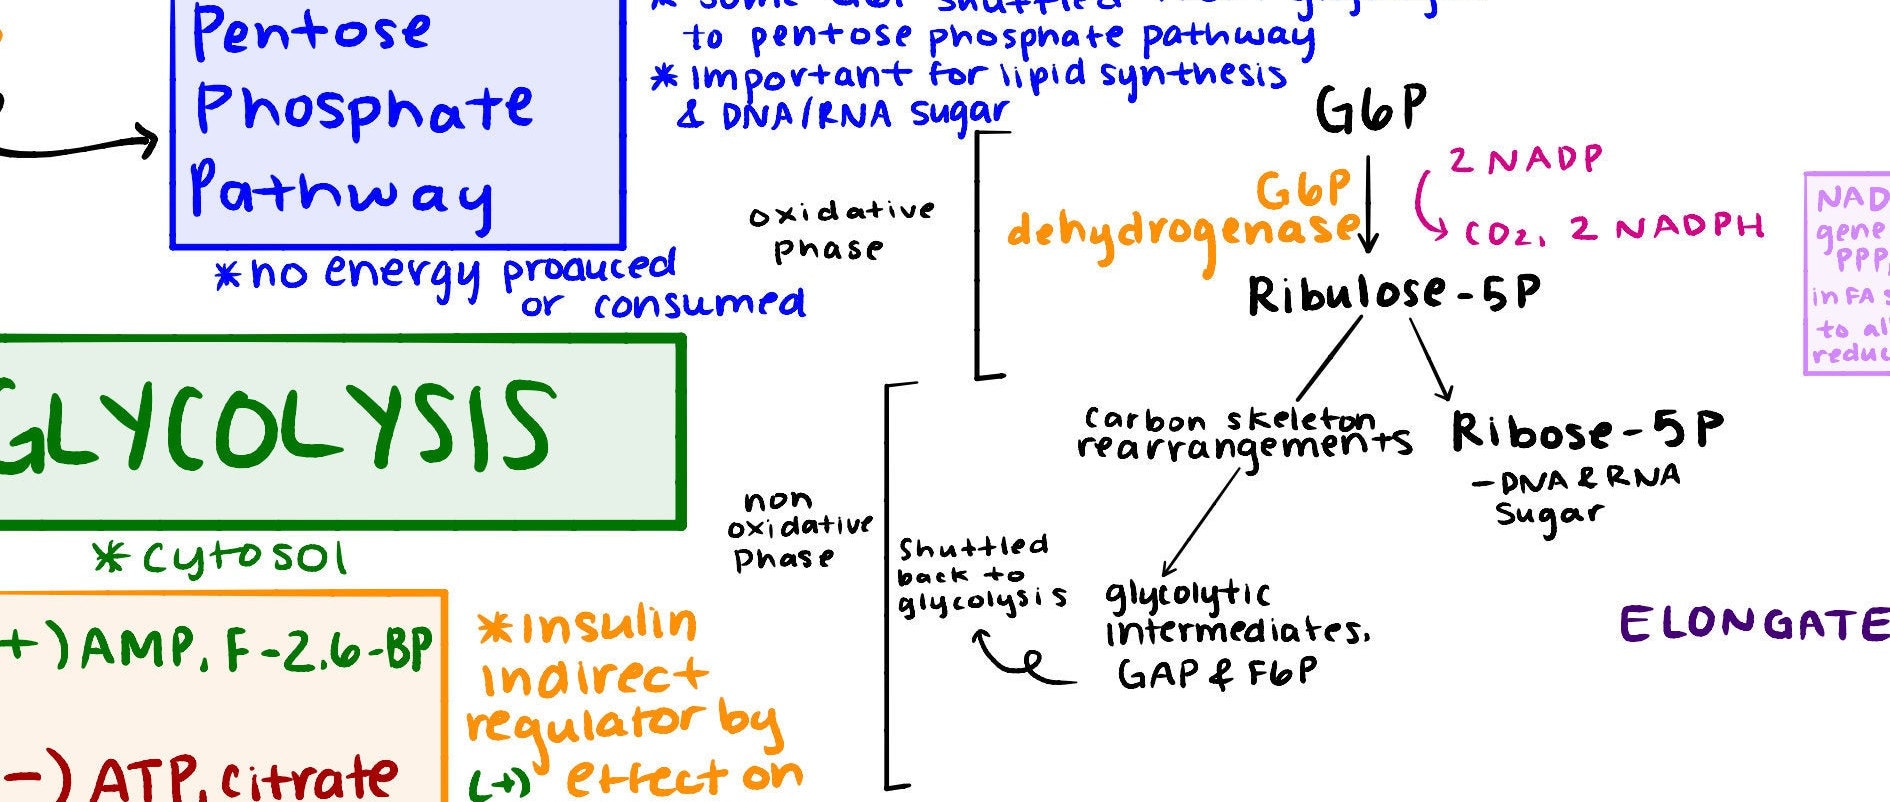 Pentose
Phosphate
Pathway
*no energy produced
or consumed
to pentose phosphate pathway
* important for lipid synthesis
& DNA/RNA sugar
GLYCOLYSIS
* cytosol
+) AMP, F-2,6-BP
-) ATP, citrate
*Insulin
indirect
regulator by
(+) effect on
oxidative
phase
G6P
G6P
dehydrogenase
2 NADP
CO2, 2 NADPH
Ribulose-5P
non
oxidative
phase
carbon skeleton
rearrangements
Ribose-5P
- DNA & RNA
sugar
shuttled
back to
glycolysis
glycolytic
intermediates,
GAP & F6P
NAD
gene
PPP,
in FA s
to al
reduc
ELONGATE